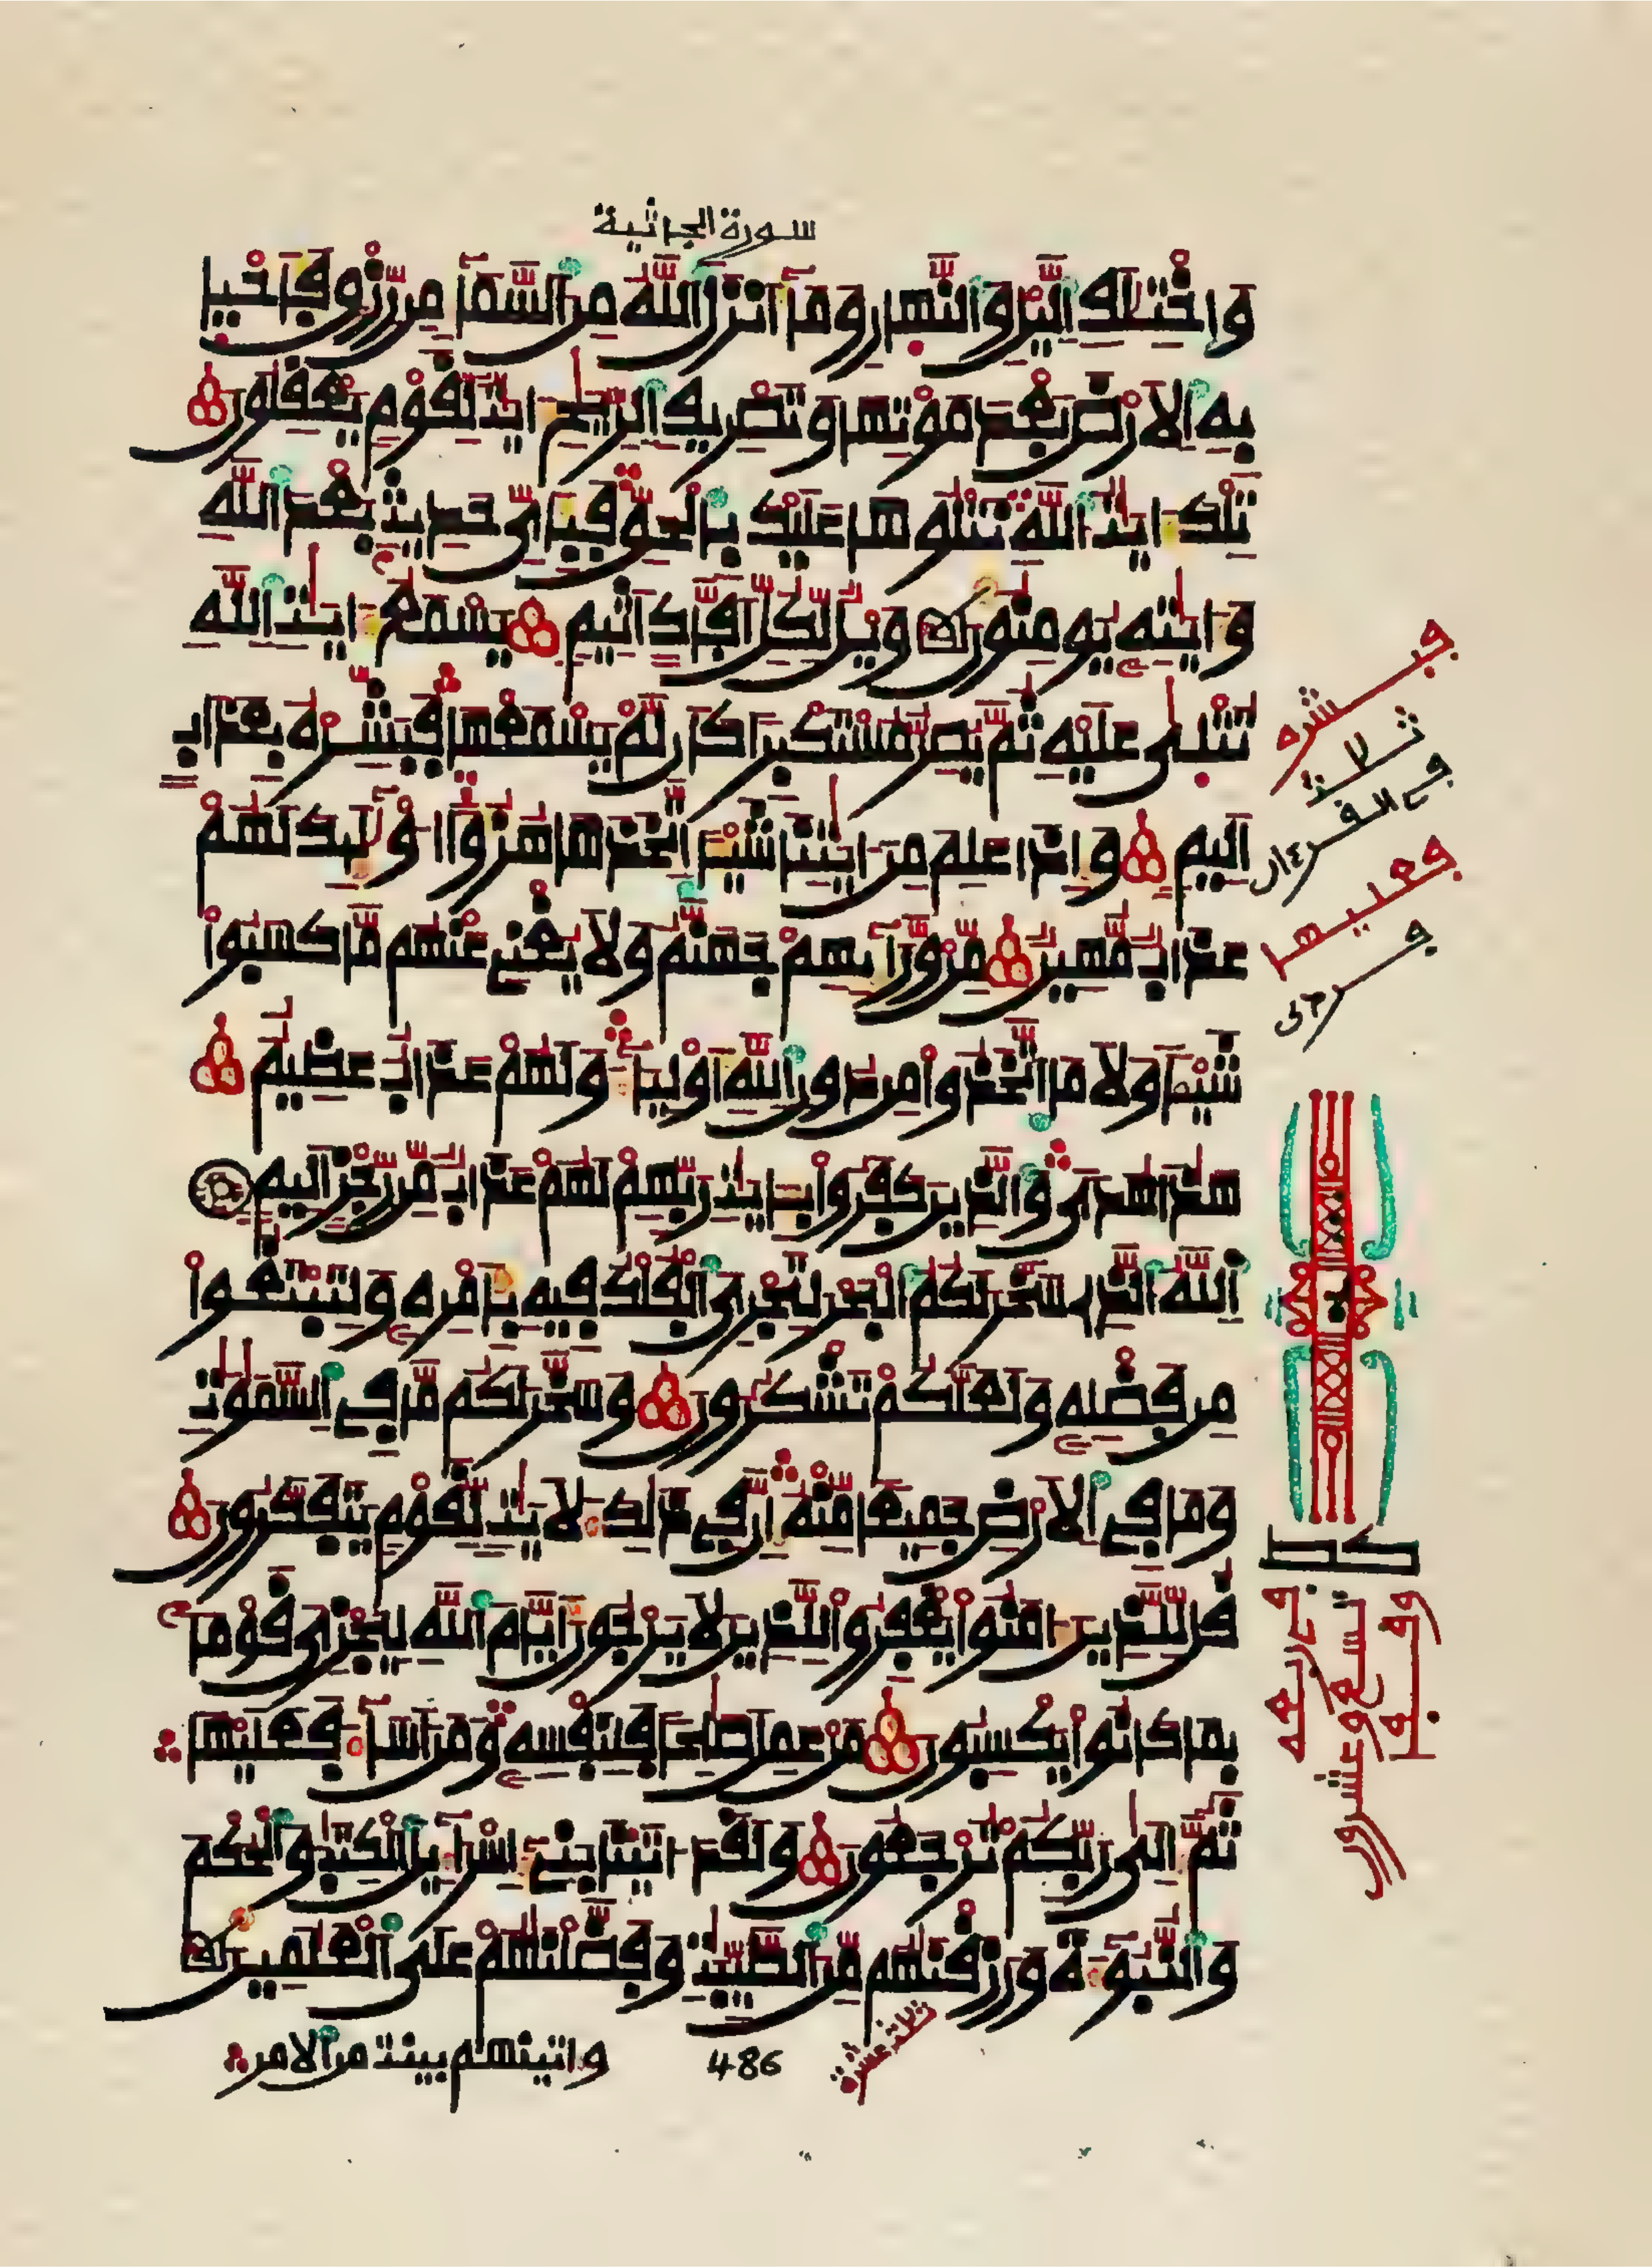 سورة الجاثية
واختلف اليل والنهار وما أنزل الله من السماء من رزق فأحيا
به الارض بعد موتها وتصريف الريح ءايت لقوم يعقلون
تلك ءايت الله نتلوها عليك بالحق فبأى حديث بعد الله
وءايته يومنون ويل لكل أفاك أثيم يسمع ءايت الله
تتلى عليه ثم يصر مستكبرا كأن لم يسمعها فبشره بعذاب
أليم وإذا علم من ءايتنا شيئا اتخذها هزؤا أولئك لهم
عذاب مهين من ورائهم جهنم ولا يغنى عنهم ما كسبوا
شيئا ولا ما اتخذوا من دون الله أولياء ولهم عذاب عظيم
هذا هدى والذين كفروا بايت ربهم لهم عذاب من رجز أليم
الله الذى سخر لكم البحر لتجرى الفلك فيه بأمره ولتبتغوا
من فضله ولعلكم تشكرون وسخر لكم ما فى السموت
وما فى الارض جميعا منه إن فى ذلك لأيت لقوم يتفكرون
قل للذين ءامنوا يغفروا للذين لا يرجون أيام الله ليجزى قوما
بما كانوا يكسبون من عمل صلحا فلنفسه ومن أساء فعليها
ثم إلى ربكم ترجعون ولقد ءاتينا بنى إسرائيل الكتب والحكم
والنبوءة ورزقنهم من الطيبت وفضلنهم على العلمين
واتينهم بينت من الامر
486
ثلثة عشرة
فعليها
كط
تسع وعشرون